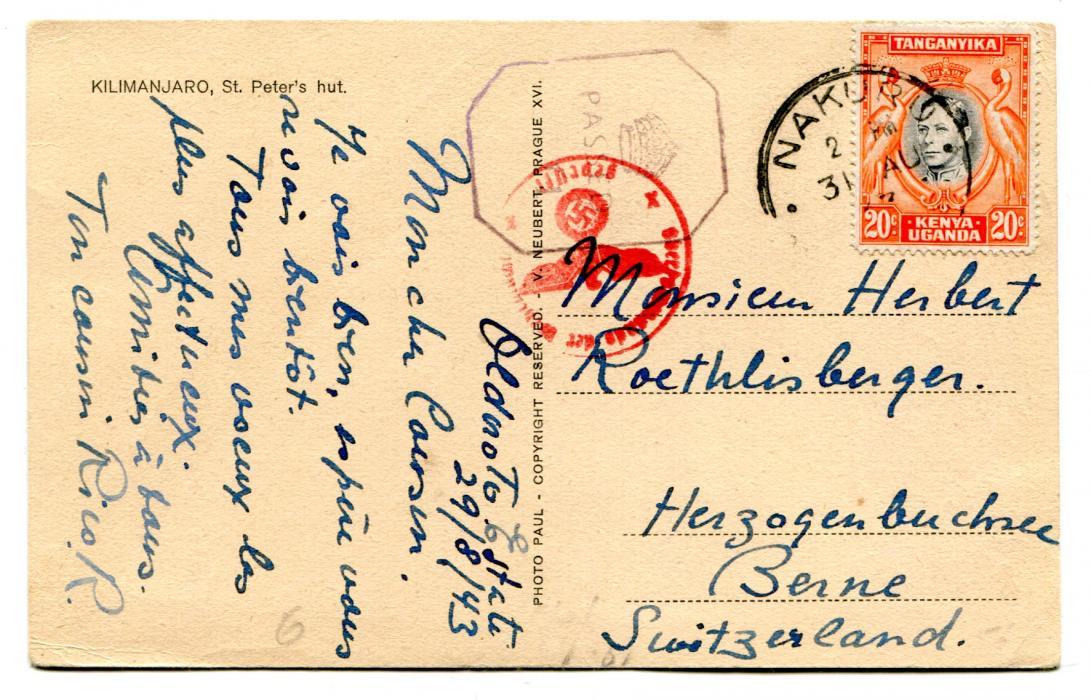 KILIMANJARO, St. Peter's hut.
Oldonoto Estate
29/8/43
Mon cher Cousin,
Je vais bien, espère vous
revoir bientôt.
Tous mes voeux les
plus affectueux.
Amitiés à tous.
Ton cousin Rico R.
6
PHOTO PAUL - COPYRIGHT RESERVED. - V. NEUBERT, PRAGUE XVI.
PASS
geprüft
der
NAKURU
2 PM
31 AU
TANGANYIKA
20c KENYA 20c
UGANDA
Monsieur Herbert
Roethlisberger.
Herzogenbuchsee
Berne
Switzerland.